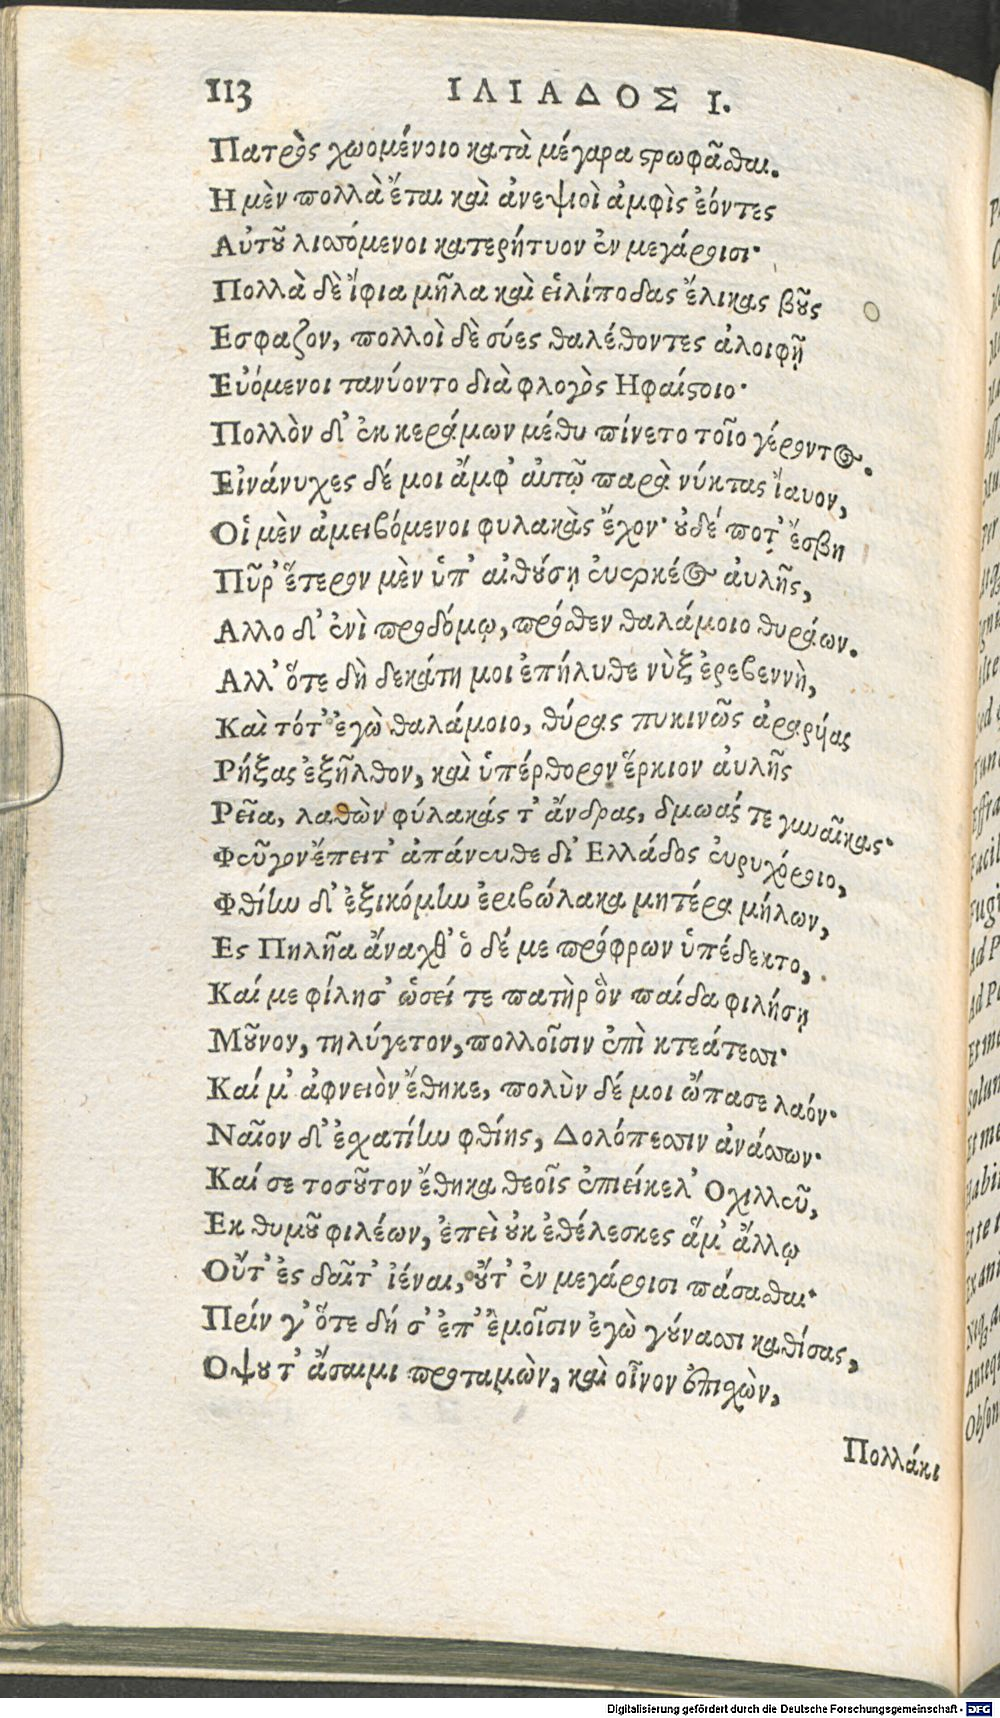 113 ΙΛΙΑΔΟΣ Ι.
Πατρὸς χωομένοιο κατὰ μέγαρα στρωφᾶσθαι.
Η μὲν πολλὰ ἔται καὶ ἀνεψιοὶ ἀμφὶς ἐόντες
Αὐτοῦ λισσόμενοι κατερήτυον ἐν μεγάροισι·
Πολλὰ δὲ ἴφια μῆλα καὶ εἰλίποδας ἕλικας βοῦς
Εσφαζον, πολλοὶ δὲ σύες θαλέθοντες ἀλοιφῇ
Εὑόμενοι τανύοντο διὰ φλογὸς Ηφαίστοιο·
Πολλὸν δ' ἐκ κεράμων μέθυ πίνετο τοῖο γέροντος.
Εἰνάνυχες δέ μοι ἄμφ' αὐτῷ παρὰ νύκτας ἴαυον,
Οἱ μὲν ἀμειβόμενοι φυλακὰς ἔχον· οὐδέ ποτ' ἔσβη
Πῦρ' ἕτερον μὲν ὑπ' αἰθούσῃ εὐερκέος αὐλῆς,
Αλλο δ' ἐνὶ προδόμῳ, πρόσθεν θαλάμοιο θυράων.
Αλλ' ὅτε δὴ δεκάτη μοι ἐπήλυθε νὺξ ἐρεβεννὴ,
Καὶ τότ' ἐγὼ θαλάμοιο, θύρας πυκινῶς ἀραρυίας
Ρήξας ἐξῆλθον, καὶ ὑπέρθορον ἕρκιον αὐλῆς
Ρεῖα, λαθὼν φύλακάς τ' ἄνδρας, δμωάς τε γυναῖκας·
Φεῦγον ἔπειτ' ἀπάνευθε δι' Ελλάδος εὐρυχόροιο,
Φθίην δ' ἐξικόμην ἐριβώλακα μητέρα μήλων,
Ες Πηλῆα ἄναχθ' ὁ δέ με πρόφρων ὑπέδεκτο,
Καί με φίλησ' ὡσεί τε πατὴρ ὃν παίδα φιλήσῃ
Μοῦνον, τηλύγετον, πολλοῖσιν ἐπὶ κτεάτεσσι·
Καί μ' ἀφνειὸν ἔθηκε, πολὺν δέ μοι ὤπασε λαόν·
Ναῖον δ' ἐσχατίην φθίης, Δολόπεσσιν ἀνάσσων·
Καί σε τοσοῦτον ἔθηκα θεοῖς ἐπιείκελ' Οχιλλεῦ,
Εκ θυμοῦ φιλέων, ἐπεὶ οὐκ ἐθέλεσκες ἅμ' ἄλλῳ
Οὔτ' ἐς δαῖτ' ἰέναι, οὔτ' ἐν μεγάροισι πάσασθαι·
Πρίν γ' ὅτε δή σ' ἐπ' ἐμοῖσιν ἐγὼ γούνασσι καθίσας,
Οψου τ' ἄσαιμι προταμὼν, καὶ οἶνον ἐπισχὼν,
Πολλάκι
Digitalisierung gefördert durch die Deutsche Forschungsgemeinschaft - DFG